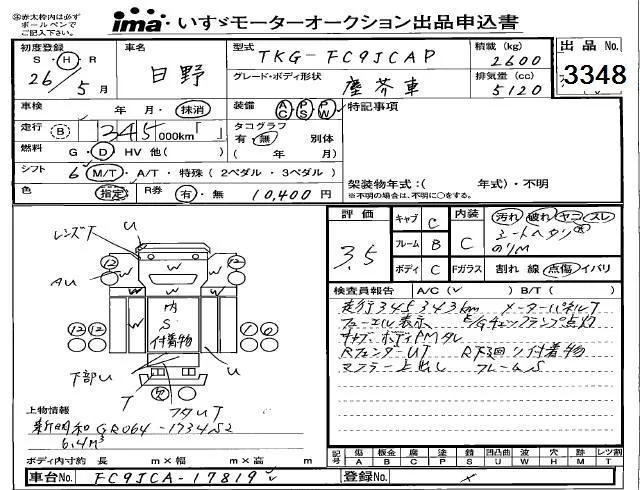 ㊟赤太枠内は必ず
ボールペンで
ご記入下さい。
ima いすゞモーターオークション出品申込書
初度登録
S・H・R
26/5月
車名
日野
型式
TKG-FC9JCAP
積載 (kg)
2600
出品No.
3348
グレード・ボディ形状
塵芥車
排気量 (cc)
5120
車検 年・月・抹消
装備 AC PS PW
特記事項
走行 B 345,000km「 」
タコグラフ
有・無 別体
( 年 月)
燃料 G・D・HV 他( )
シフト 6 M/T・A/T・特殊(2ペダル・3ペダル)
色 指定 R券 有・無 10,400円
架装物年式:( 年式)・不明
※不明の場合は、不明に〇をする。
評価
3.5
キャブ C
フレーム B
ボディ C
内装 C
汚れ 破れ ヤニ スレ
シートヘタリ大
のりM
Fガラス 割れ 線 点傷 イパリ
検査員報告 A/C(✓) B/T( )
走行345343km メーターパネルT
フューエル表示 E/Gチェックランプ点灯
キャブ ボディPMダレ
RフェンダーUT R下廻り付着物
マフラー上出し フレームS
レンズT
U
12 12
AU
W W W W W
内
S
付着物
12 12
1 6
下部U
U
T
7
フタUT
上物情報
新明和 GR064-1734S2
6.4m³
ボディ内寸約 長 m×幅 m×高 m
記号 傷A 板金B 腐C 塗P 錆S 凹凸曲U 波W 穴H 跡M レツ割T
車台No. FC9JCA-17819
登録No.